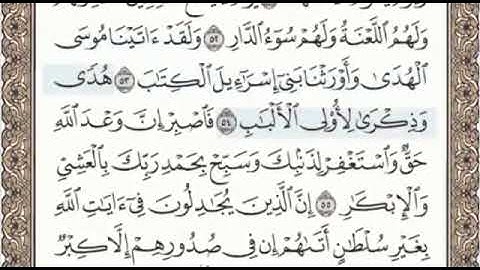 وَلَهُمُ ٱللَّعۡنَةُ وَلَهُمۡ سُوٓءُ ٱلدَّارِ ٥٢ وَلَقَدۡ ءَاتَيۡنَا مُوسَى
ٱلۡهُدَىٰ وَأَوۡرَثۡنَا بَنِيٓ إِسۡرَٰٓءِيلَ ٱلۡكِتَٰبَ ٥٣ هُدٗى
وَذِكۡرَىٰ لِأُوْلِي ٱلۡأَلۡبَٰبِ ٥٤ فَٱصۡبِرۡ إِنَّ وَعۡدَ ٱللَّهِ
حَقّٞ وَٱسۡتَغۡفِرۡ لِذَنۢبِكَ وَسَبِّحۡ بِحَمۡدِ رَبِّكَ بِٱلۡعَشِيِّ
وَٱلۡإِبۡكَٰرِ ٥٥ إِنَّ ٱلَّذِينَ يُجَٰدِلُونَ فِيٓ ءَايَٰتِ ٱللَّهِ
بِغَيۡرِ سُلۡطَٰنٍ أَتَىٰهُمۡ إِن فِي صُدُورِهِمۡ إِلَّا كِبۡرٞ